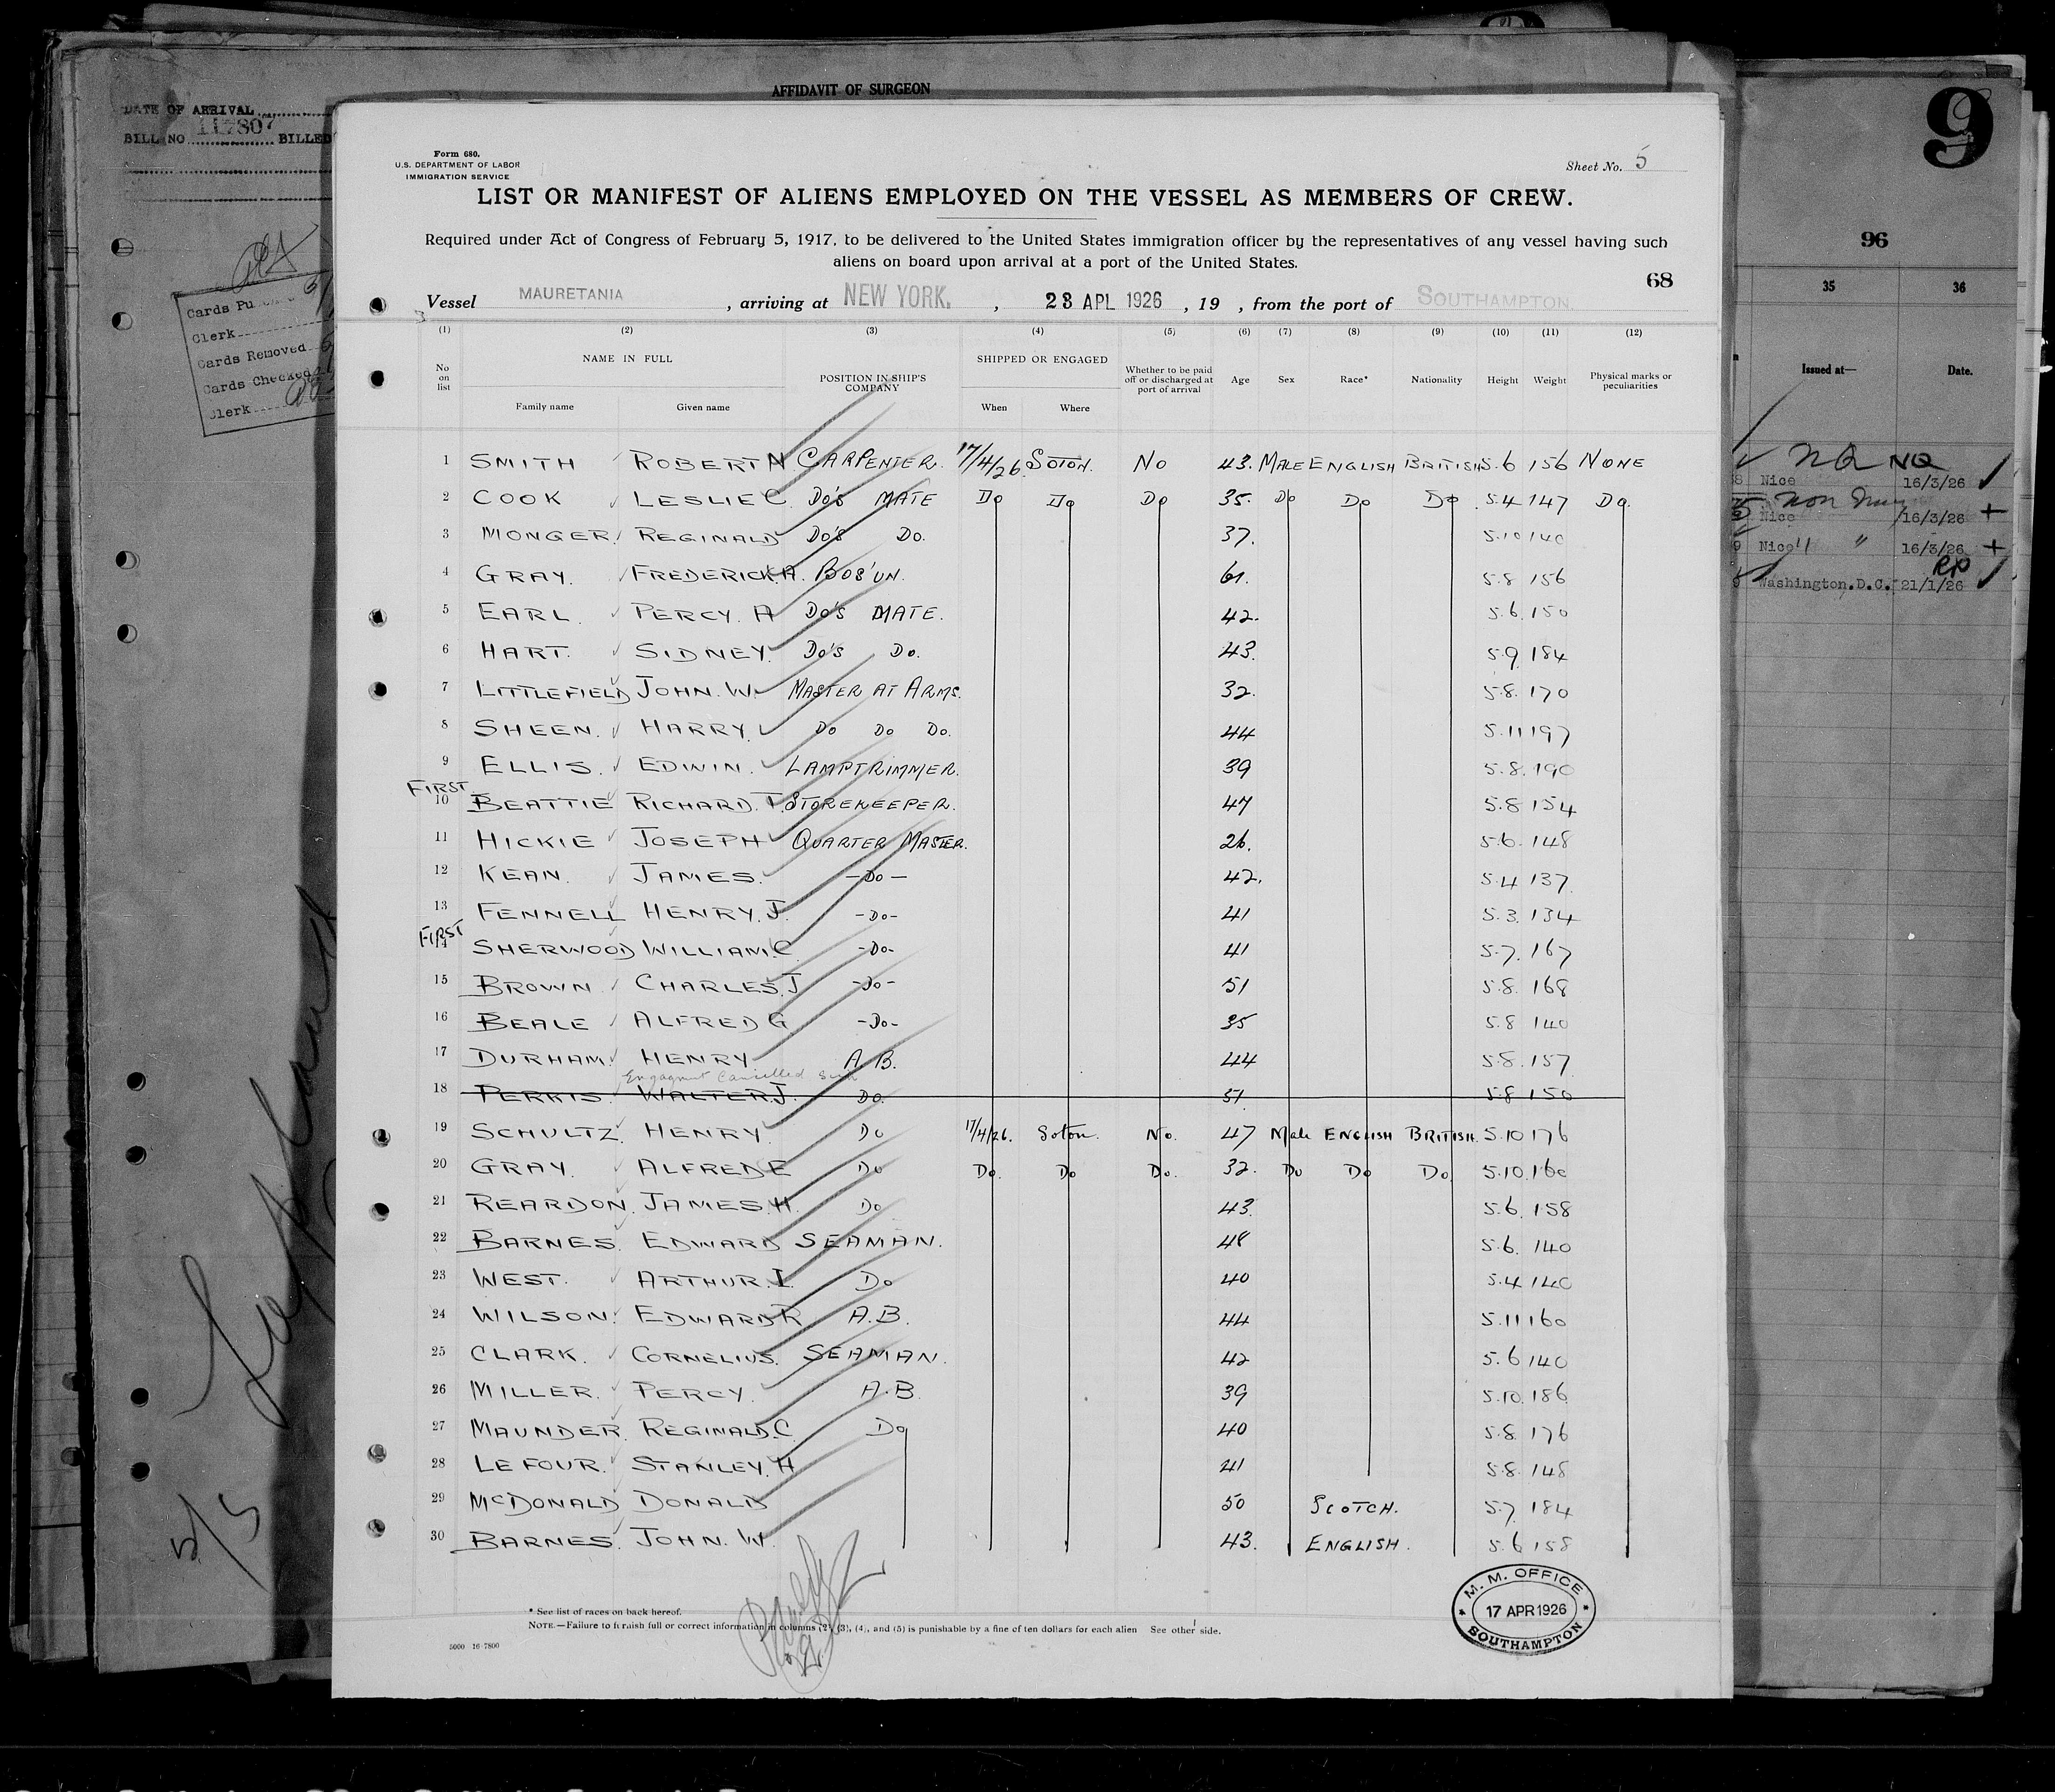 AFFIDAVIT OF SURGEON
DATE OF ARRIVAL
BILL NO 117807 BILLED
Cards Pu
Clerk
Cards Removed
Cards Checked
Clerk
9
96
35 36
Issued at— Date.
NQ NQ
Nice 16/3/26
Nice 16/3/26
Nice " " 16/3/26
RP
Washington.D.C. 21/1/26
Form 680.
U.S. DEPARTMENT OF LABOR
IMMIGRATION SERVICE
Sheet No. 5
LIST OR MANIFEST OF ALIENS EMPLOYED ON THE VESSEL AS MEMBERS OF CREW.
Required under Act of Congress of February 5, 1917, to be delivered to the United States immigration officer by the representatives of any vessel having such
aliens on board upon arrival at a port of the United States.
68
Vessel MAURETANIA , arriving at NEW YORK. , 23 APL 1926 , 19 , from the port of SOUTHAMPTON
(1) (2) (3) (4) (5) (6) (7) (8) (9) (10) (11) (12)
No on list NAME IN FULL POSITION IN SHIP'S COMPANY SHIPPED OR ENGAGED Whether to be paid off or discharged at port of arrival Age Sex Race* Nationality Height Weight Physical marks or peculiarities
Family name Given name When Where
1 SMITH ROBERT N CARPENTER. 17/4/26 SOTON. NO 43. MALE ENGLISH BRITISH 5.6 156 NONE
2 COOK LESLIE C. DO'S MATE DO DO DO 35. DO DO DO 5.4 147 DO.
3 MONGER REGINALD DO'S DO. 37. 5.10 140
4 GRAY. FREDERICK.A. BOS'UN. 61. 5.8 156
5 EARL. PERCY. A DO'S MATE. 42. 5.6. 150
6 HART. SIDNEY. DO'S DO. 43. 5.9. 184
7 LITTLEFIELD JOHN. W. MASTER AT ARMS. 32. 5.8. 170
8 SHEEN. HARRY. DO DO DO. 44 5.11 197
9 ELLIS. EDWIN. LAMPTRIMMER. 39 5.8. 190
FIRST
10 BEATTIE RICHARD. T. STOREKEEPER. 47 5.8 154
11 HICKIE JOSEPH QUARTER MASTER. 26. 5.6. 148
12 KEAN. JAMES. -DO- 42. 5.4 137.
13 FENNELL HENRY. J. -DO- 41 5.3. 134
FIRST
14 SHERWOOD WILLIAM.C. -DO- 41 5.7. 167
15 BROWN CHARLES.J -DO- 51 5.8. 168
16 BEALE ALFRED G -DO- 35 5.8 140
17 DURHAM. HENRY A.B. 44 5.8. 157
Engagement Cancelled
18 PERKIS. WALTER.J. DO. 51. 5.8 150
19 SCHULTZ. HENRY. DO 17/4/26. Soton. No. 47 Male ENGLISH BRITISH. 5.10 176
20 GRAY. ALFRED E DO DO. DO DO. 32. DO DO DO. 5.10. 160
21 REARDON. JAMES.H. DO 43. 5.6. 158
22 BARNES. EDWARD SEAMAN. 48 5.6. 140
23 WEST. ARTHUR.I. DO 40 5.4 140
24 WILSON. EDWARD R. A.B. 44 5.11 160
25 CLARK. CORNELIUS. SEAMAN. 42 5.6 140
26 MILLER. PERCY. A.B. 39 5.10. 186
27 MAUNDER. REGINALD.C. DO 40 5.8. 176
28 LE FOUR. STANLEY. H 41 5.8. 148
29 McDONALD DONALD 50 SCOTCH. 5.7. 184
30 BARNES. JOHN. W. 43. ENGLISH. 5.6 158
* See list of races on back hereof.
NOTE.—Failure to furnish full or correct information in columns (2), (3), (4), and (5) is punishable by a fine of ten dollars for each alien See other side.
5000 16-7800
M. M. OFFICE
17 APR 1926
SOUTHAMPTON